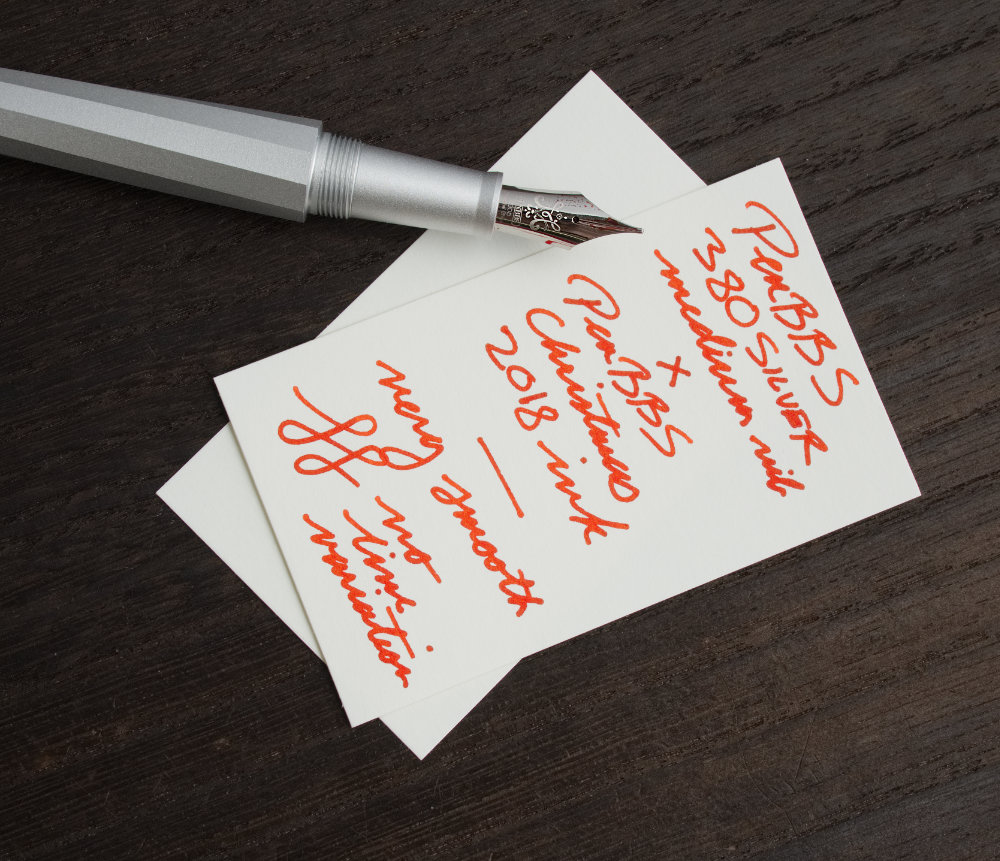 PenBBS
380 SILVER
medium nib
x
PenBBS
Christmas
2018 ink
—
very smooth
no
line
variation